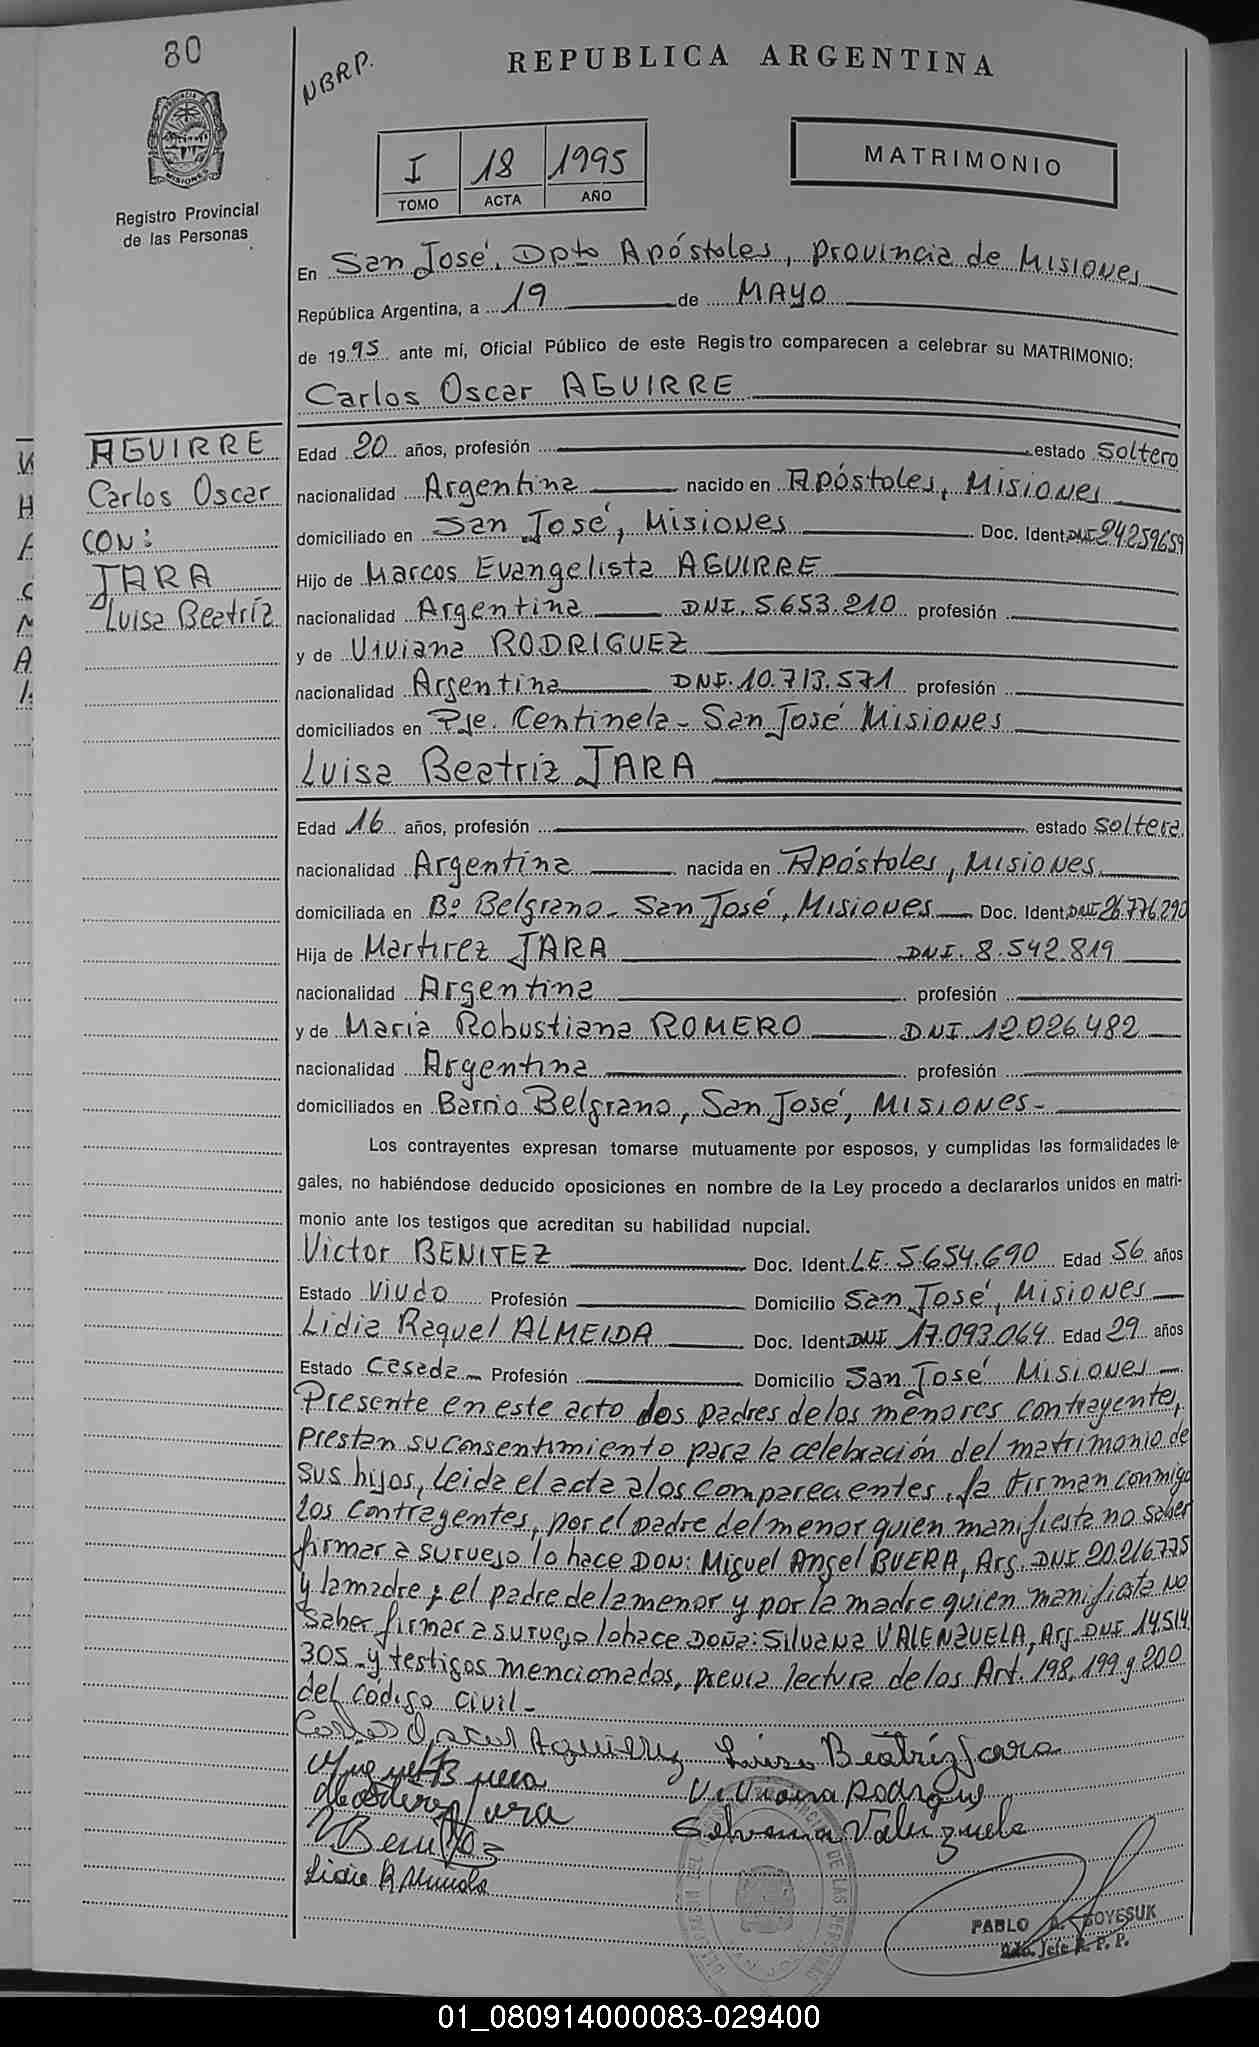 80
NBRP.
REPUBLICA ARGENTINA
PROVINCIA DE
MISIONES
Registro Provincial
de las Personas
I 18 1995
TOMO ACTA AÑO
MATRIMONIO
En San José, Dpto Apóstoles, provincia de Misiones
República Argentina, a 19 de MAYO
de 1995 ante mí, Oficial Público de este Registro comparecen a celebrar su MATRIMONIO:
Carlos Oscar AGUIRRE
AGUIRRE
Carlos Oscar
CON:
JARA
Luisa Beatríz
Edad 20 años, profesión estado Soltero
nacionalidad Argentina nacido en Apóstoles, Misiones
domiciliado en San José, Misiones Doc. Ident. DNI 24259659
Hijo de Marcos Evangelista AGUIRRE
nacionalidad Argentina DNI. 5.653.210 profesión
y de Viviana RODRIGUEZ
nacionalidad Argentina DNI. 10.713.571 profesión
domiciliados en Pje. Centinela - San José Misiones
Luisa Beatriz JARA
Edad 16 años, profesión estado Soltera
nacionalidad Argentina nacida en Apóstoles, Misiones
domiciliada en Bº Belgrano - San José, Misiones Doc. Ident. DNI 26.776.290
Hija de Martirez JARA DNI. 8.542.819
nacionalidad Argentina profesión
y de María Robustiana ROMERO DNI. 12.026.482
nacionalidad Argentina profesión
domiciliados en Barrio Belgrano, San José, Misiones -
Los contrayentes expresan tomarse mutuamente por esposos, y cumplidas las formalidades le-
gales, no habiéndose deducido oposiciones en nombre de la Ley procedo a declararlos unidos en matri-
monio ante los testigos que acreditan su habilidad nupcial.
Victor BENITEZ Doc. Ident. LE. 5.654.690 Edad 56 años
Estado Viudo Profesión Domicilio San José, Misiones
Lidia Raquel ALMEIDA Doc. Ident. DNI 17.093.064 Edad 29 años
Estado Casada Profesión Domicilio San José Misiones
Presente en este acto los padres de los menores contrayentes,
prestan su consentimiento para la celebración del matrimonio de
sus hijos, leida el acta a los comparecientes, la firman conmigo
los contrayentes, por el padre del menor quien manifiesta no saber
firmar a su ruego lo hace DON: Miguel Angel BUERA, Arg. DNI 20.216.775
y la madre, el padre de la menor y por la madre quien manifiesta no
saber firmar a su ruego lo hace DOÑA: Silvana VALENZUELA, Arg. DNI 14.514
305 - y testigos mencionados, previa lectura de los Art. 198, 199 y 200
del código civil -
Carlos Oscar Aguirre Luisa Beatríz Jara
Miguel Buera Viviana Rodrigues
Jara Selvana Valenzuela
V Benitez
Lidia R Almeida
PABLO A. BOYESUK
Jefe R. P. P.
01_080914000083-029400